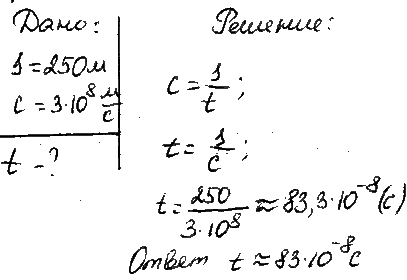 Дано:
s=250м
c=3·10⁸ м/с
t-?
Решение:
c=s/t;
t=s/c;
t=250/3·10⁸≈83,3·10⁻⁸(с)
Ответ t≈83·10⁻⁸с